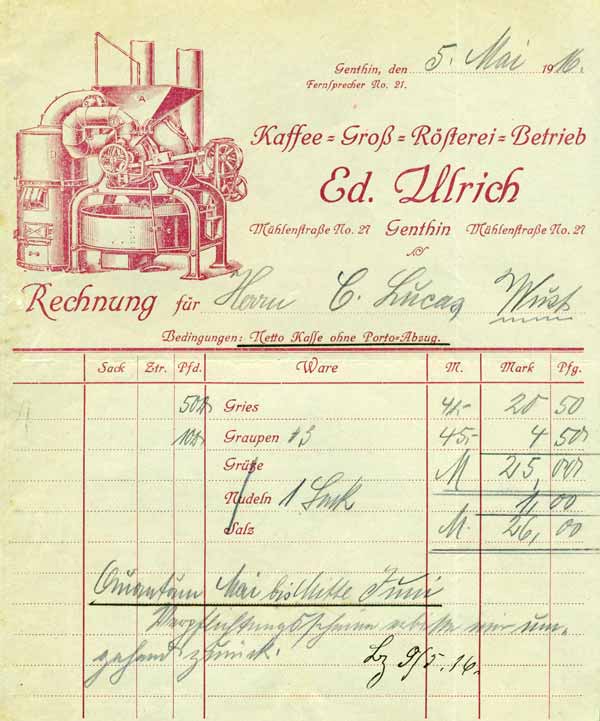 Genthin, den 5. Mai 1916.
Fernsprecher No. 21.
Kaffee=Groß=Rösterei=Betrieb
Ed. Ulrich
Mühlenstraße No. 27 Genthin Mühlenstraße No. 27
Rechnung für Herrn C. Lucas Wust
Bedingungen: Netto Kasse ohne Porto=Abzug.
Sack Ztr. Pfd. Ware M. Mark Pfg.
50 Gries 41,- 20 50
10 Graupen #3 45,- 4 50
Grütze M 25,00
Nudeln 1 Sack 1,00
Salz M. 26,00
Quantum Mai bis Mitte Juni
Verpflichtungsschein erbitte mir um-
gehend zurück.
Bz 9/5.16.
A